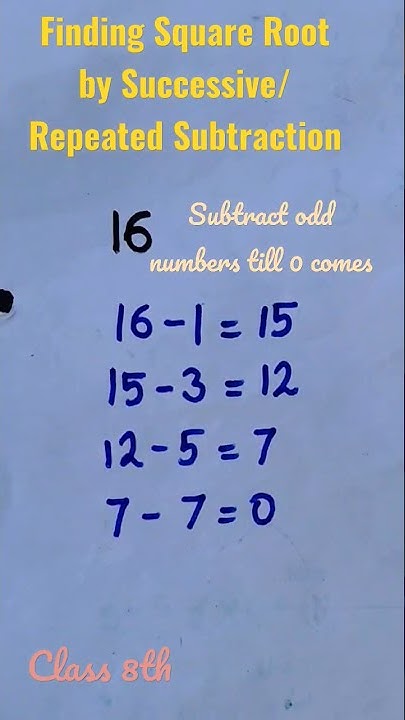 Finding Square Root
by Successive/
Repeated Subtraction
16
Subtract odd
numbers till 0 comes
16-1=15
15-3=12
12-5=7
7-7=0
Class 8th